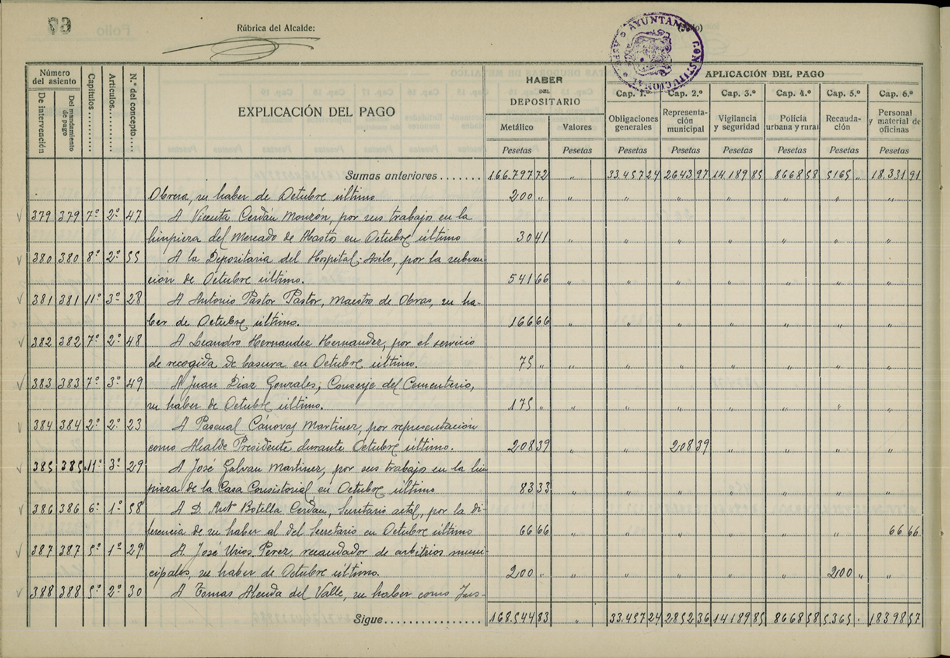 67
Folio
Rúbrica del Alcalde:
AYUNTAMIENTO CONSTITUCIONAL ASPE
Número del asiento
De intervención
Del mandamiento de pago
Capítulos
Artículos
N.º del concepto
EXPLICACIÓN DEL PAGO
HABER DEL DEPOSITARIO
Metálico Valores
Pesetas Pesetas
APLICACIÓN DEL PAGO
Cap. 1.º Cap. 2.º Cap. 3.º Cap. 4.º Cap. 5.º Cap. 6.º
Obligaciones generales Representación municipal Vigilancia y seguridad Policía urbana y rural Recaudación Personal y material de oficinas
Pesetas Pesetas Pesetas Pesetas Pesetas Pesetas
Sumas anteriores 166.797 72 " 33.457 24 2643 97 14.189 85 8668 58 5165 " 18.331 91
Obrera, su haber de Octubre último 200 " " " " " " " "
379 379 7º 2º 47 A Vicenta Cerdán Monzón, por sus trabajo en la
limpieza del Mercado de Abasto en Octubre último 30 41 " " " " " " "
380 380 8º 2º 55 A la Depositaria del Hospital-Asilo, por la subven-
ción de Octubre último. 541 66 " " " " " " "
381 381 11º 3º 28 A Antonio Pastor Pastor, Maestro de Obras, su ha-
ber de Octubre último. 166 66 " " " " " " "
382 382 7º 2º 48 A Leandro Hernandez Hernandez, por el servicio
de recogida de basura en Octubre último. 75 " " " " " " " "
383 383 7º 3º 49 A Juan Diaz Gonzales, Conserje del Cementerio,
su haber de Octubre último. 175 " " " " " " " "
384 384 2º 2º 23 A Pascual Cánovas Martinez, por representación
como Alcalde Presidente durante Octubre último. 208 39 " " 208 39 " " " "
385 385 11º 3º 29 A José Galvan Martinez, por sus trabajo en la lim
pieza de la Casa Consistorial en Octubre último 83 33 " " " " " " "
386 386 6º 1º 38 A D. Botella Cerdán, Secretario actal, por la di-
ferencia de su haber al del Secretario en Octubre último 66 66 " " " " " " 66 66
387 387 5º 1º 29 A José Urios Perez, recaudador de arbitrios muni-
cipales, su haber de Octubre último. 200 " " " " " " 200 " "
388 388 5º 2º 30 A Tomas Alenda del Valle, su haber como
Sigue 168.544 83 33.457 24 2852 36 14189 85 8668 58 5.365 " 18398 57